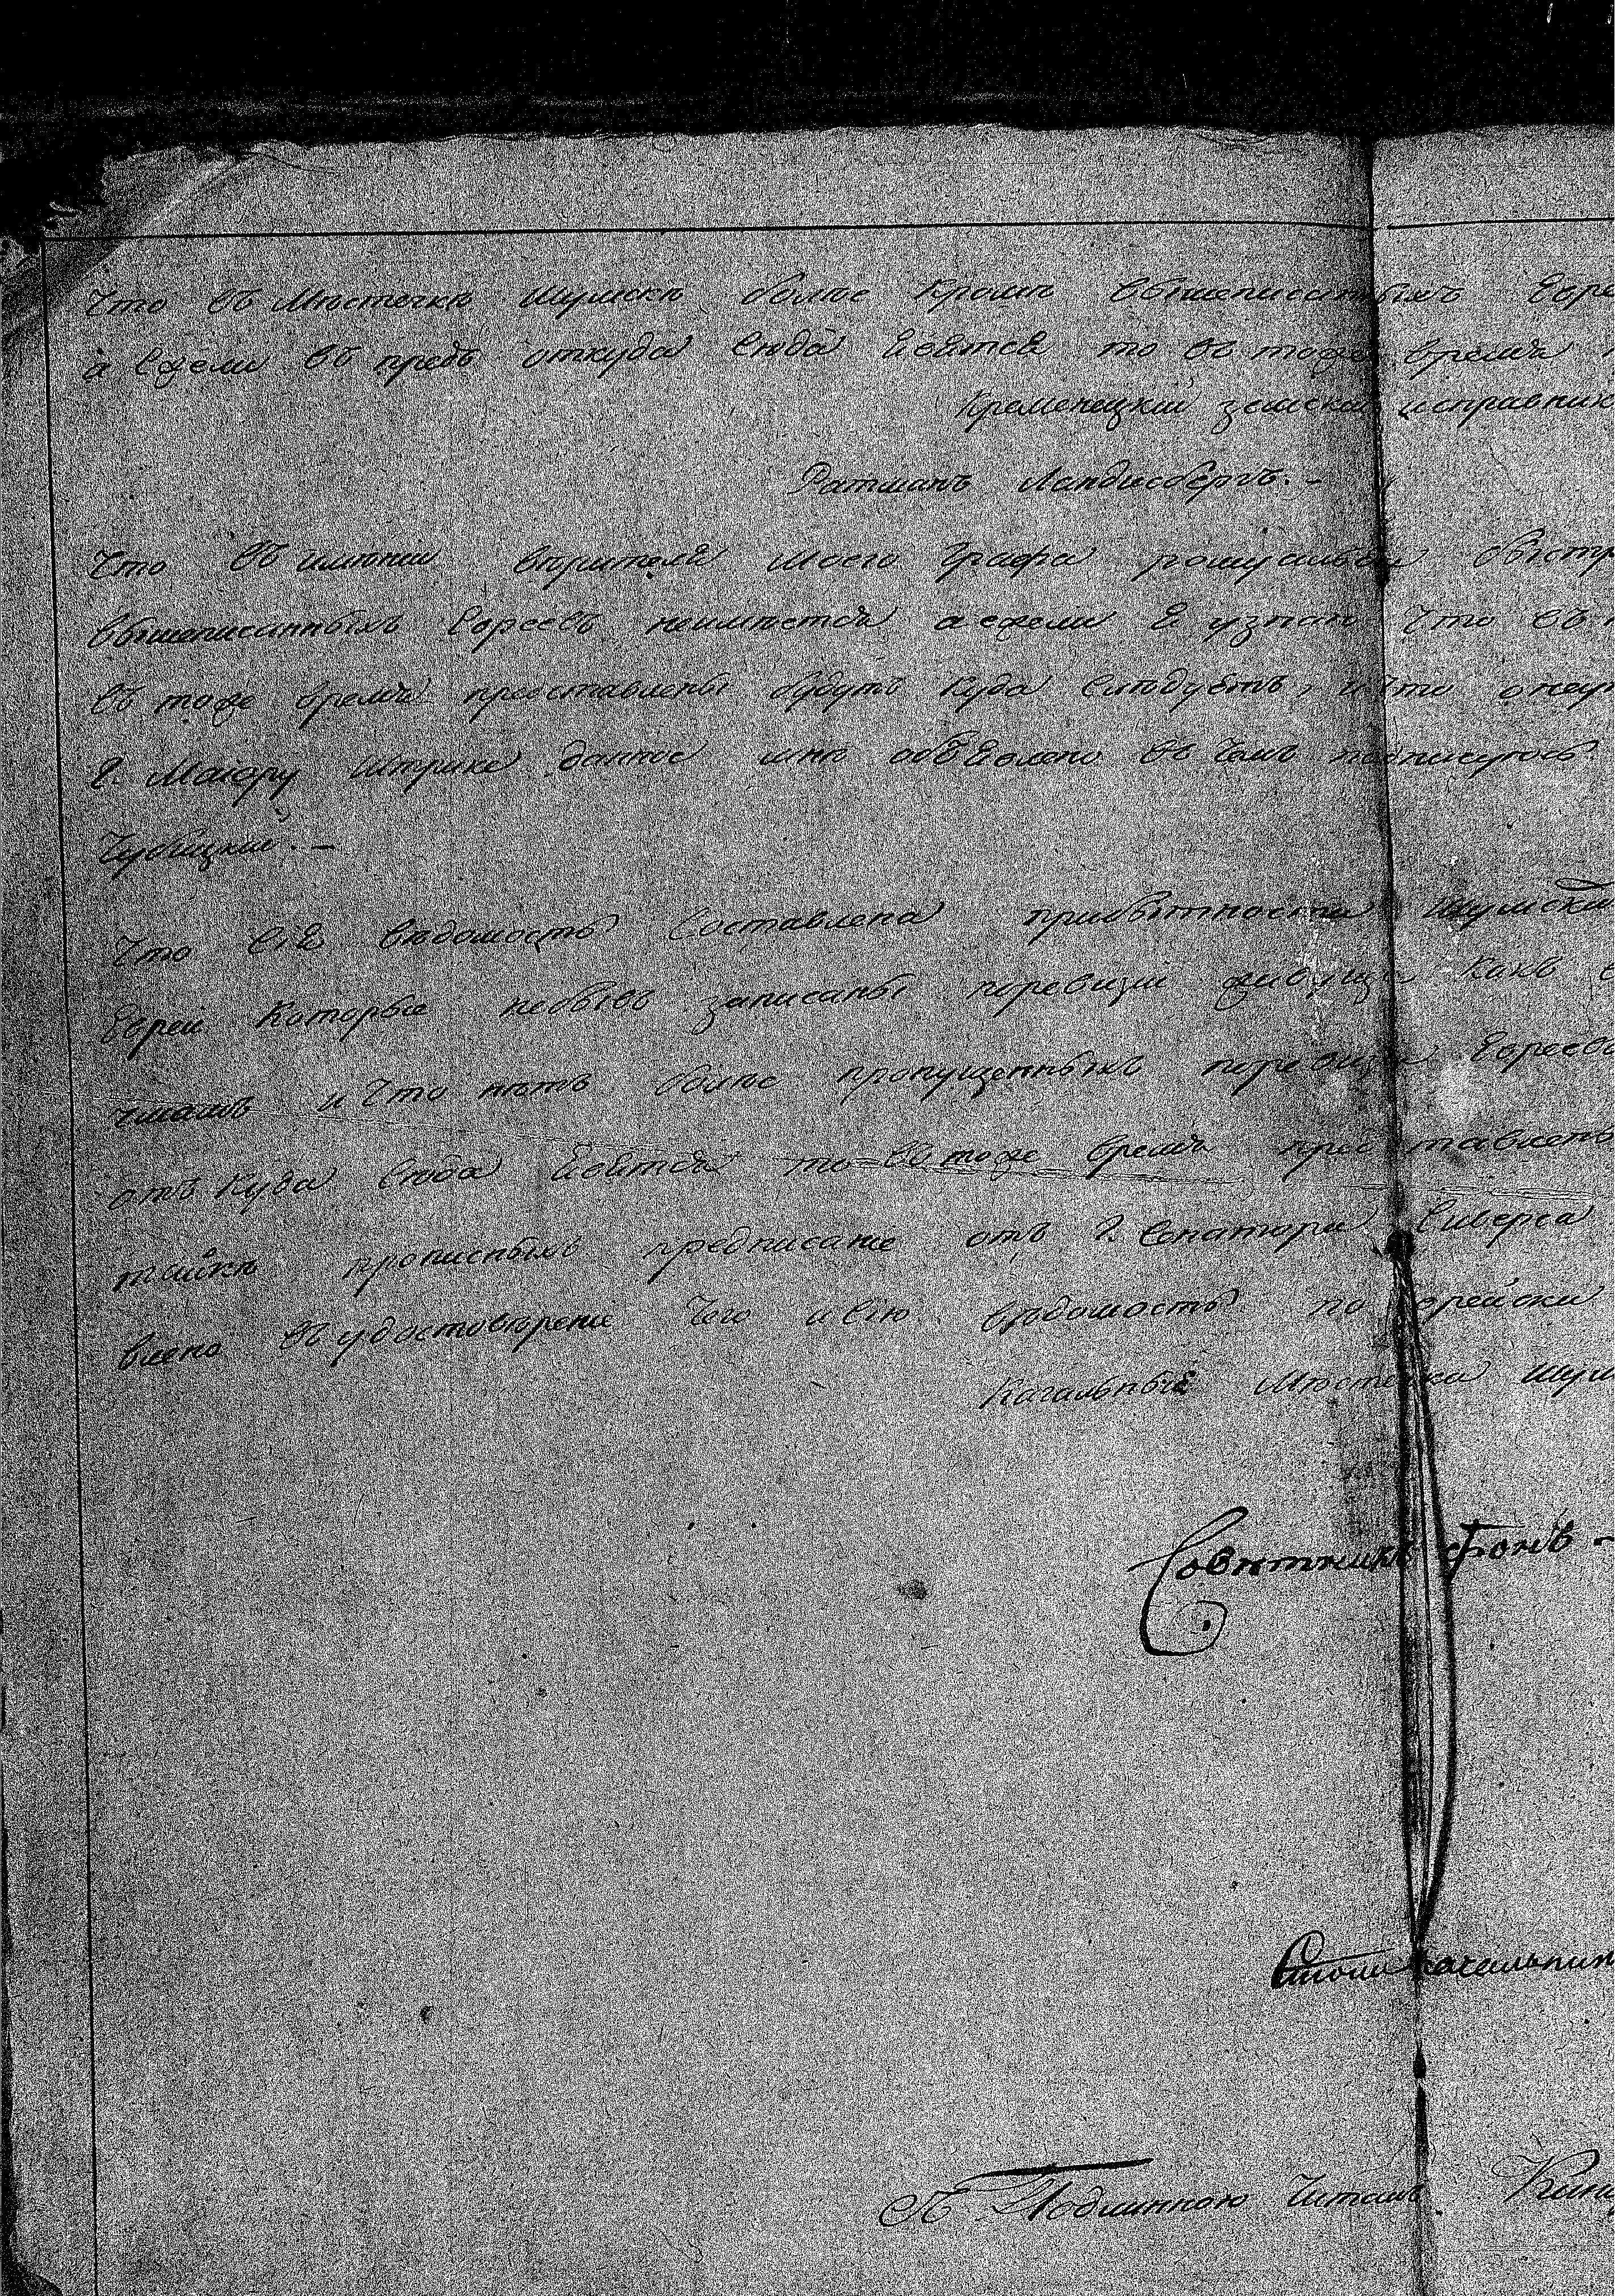 Что въ Мѣстечкѣ Шумскѣ болѣе Кромѣ вышеписанныхъ Евре
а Ежели въ предь откуда Сюда явятся то въ тоже время
Кременецкій земской исправник
Ратманъ Ландисбергъ. -
Что въ имѣнии вѣрителя Моего Графа
вышеписанныхъ Евреевъ неимѣется а ежели я узнаю Что въ
въ тоже время представлены будутъ Куда Слѣдуетъ, и что
Г. Маіору данное мнѣ объявлено въ чемъ подписуюсь

Что Сія вѣдомость Составлена прибытности Шумски
Еврей Которые небывъ записаны поревизіи живущи Какъ
и Что нѣтъ болѣе пропущенныхъ поревизи Евреевъ
отъ Куда Сюда явятся то въ тоже время представлены
прописныхъ предписание отъ Г. Сенатора Сиверса
влено въ удостоверение Чего и Сію вѣдомость по Еврейски
Кагальные Мѣстечка Шум
Совѣтникъ Фонъ -
Столоначальник
Съ Подлинною Читалъ